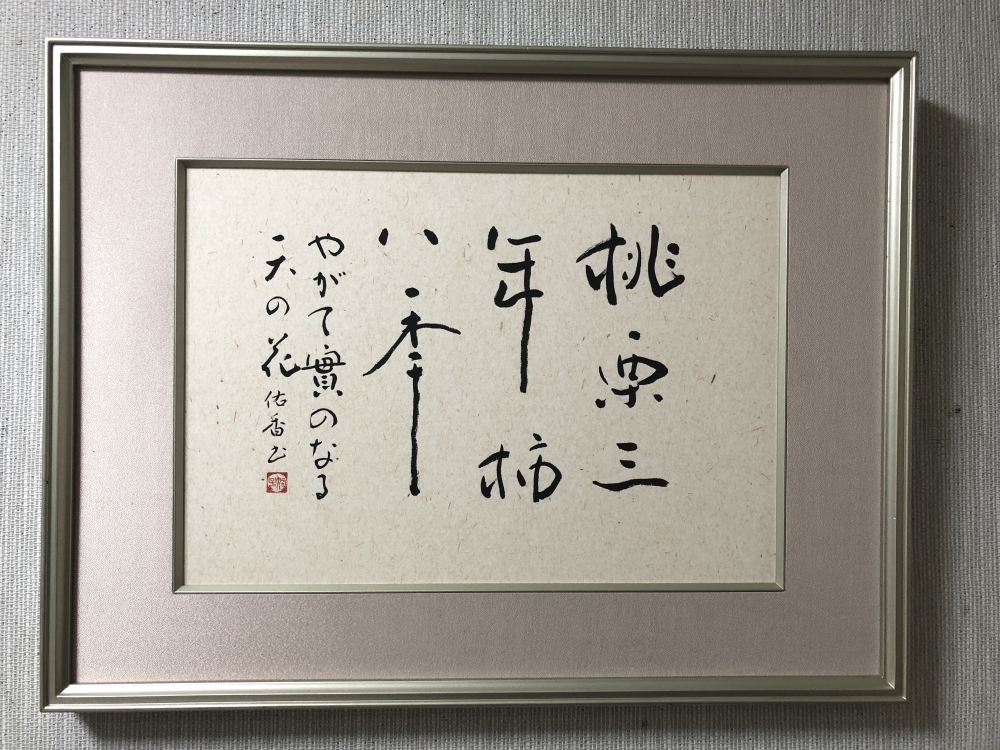 桃栗三
年柿
八秊
やがて實のなる
天の花 佑香书